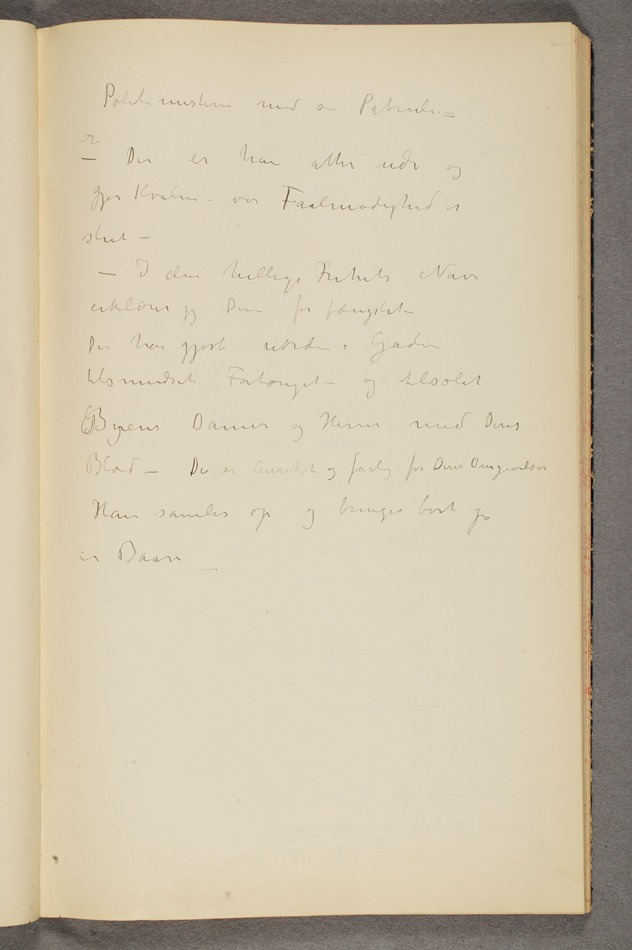 Politimesteren med sin Patrulje =
– Der er han atter ude og
gjør Kvalm – vor Taalmodighed er
slut –
– I den hellige Friheds Navn
erklærer jeg Dem for fængslet –
De har gjort uorden i Gaden
tilsmudset Fortouget – og tilsølet
Byens Damer og Herrer med Deres
Blod – De er og farlig for Deres Omgivelser
Han samles op og bringes bort på
en Baare –